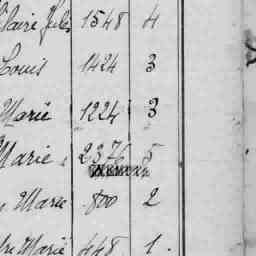 Claire Jules 1548 4
Louis 1424 3
Marie 1224 3
Marie 2376 5
Marie 800 2
Marie 448 1.